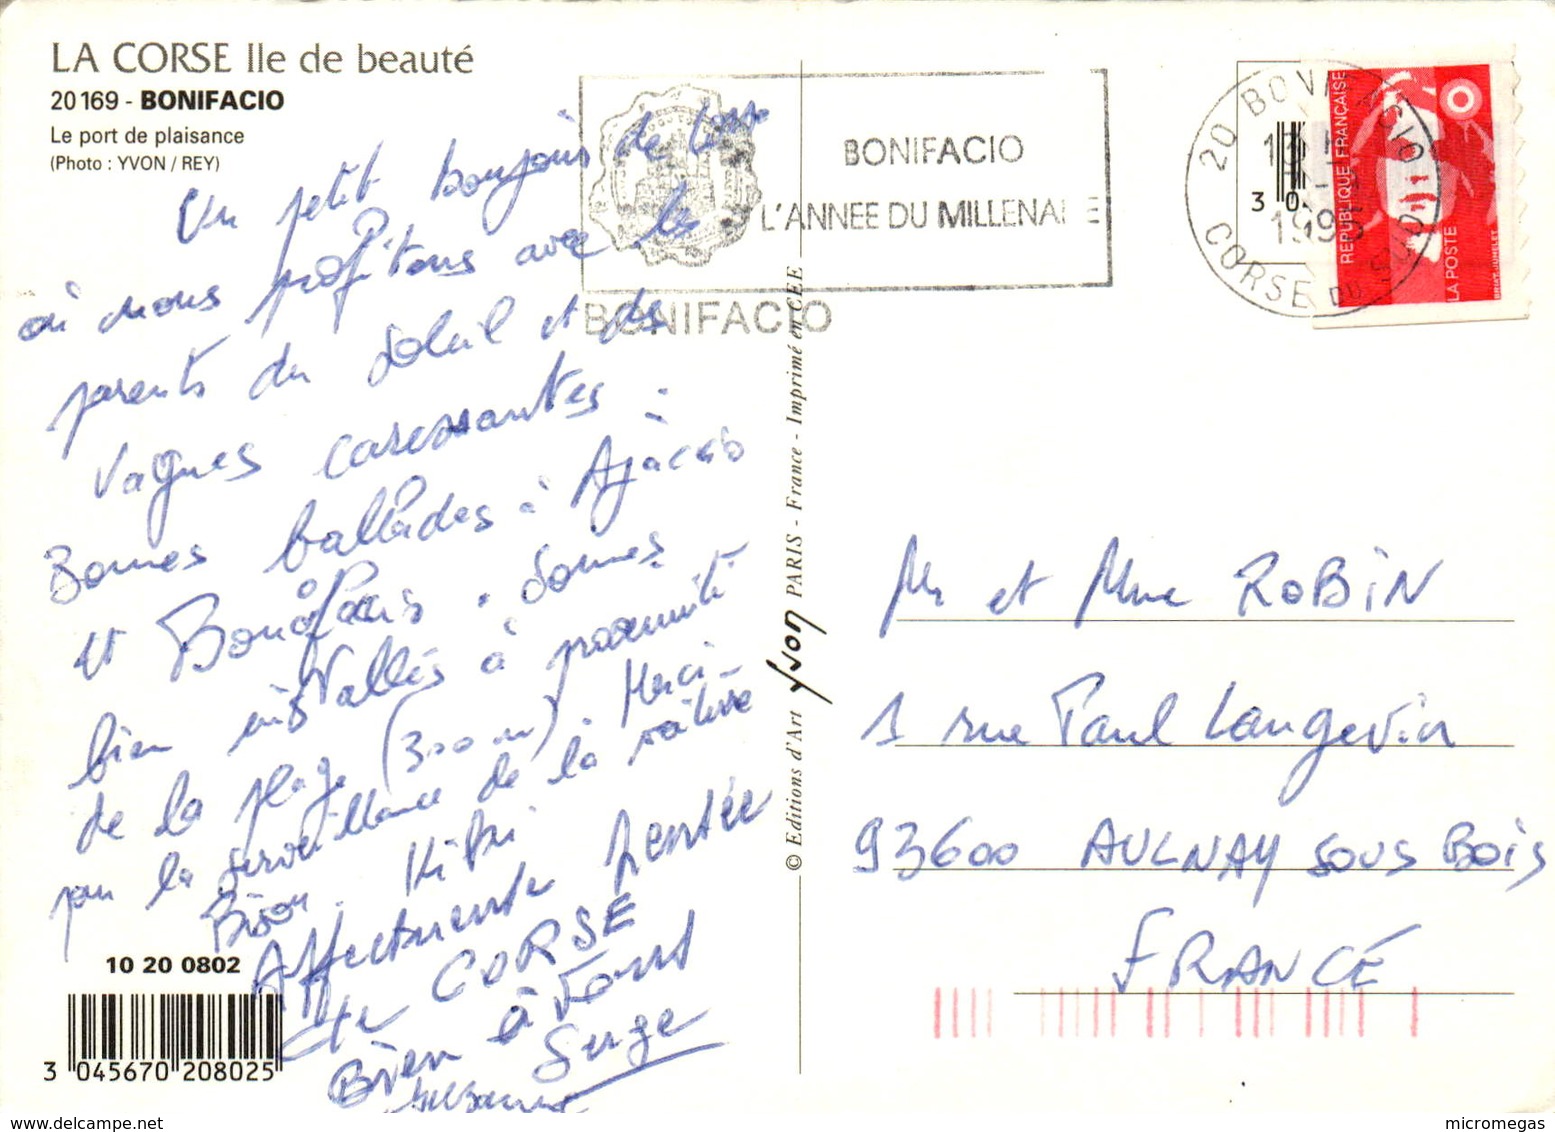 LA CORSE Ile de beauté
20169 - BONIFACIO
Le port de plaisance
(Photo : YVON / REY)
Un petit bonjour de Corse
où nous profitons avec les
parents du soleil et des
vagues caressantes.
Bonnes ballades à Ajaccio
et Bonifacio. Sommes
bien installés à proximité
de la plage (300 m). Merci
pour la surveillance de la voiture
Bisou
Affectueuse
CORSE
Bien à vous
Serge
Suzanne
10 20 0802
3 045670 208025
© Editions d'Art yvon PARIS - France - Imprimé en CEE
BONIFACIO
L'ANNEE DU MILLENAIRE
BONIFACIO
20 BONIFACIO
1995
CORSE DU SUD
3 0
REPUBLIQUE FRANÇAISE
LA POSTE
Mr et Mme ROBIN
1 rue Paul Langevin
93600 AULNAY SOUS BOIS
FRANCE
www.delcampe.net
micromegas